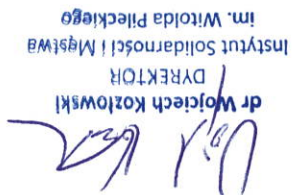 dr Wojciech Kozłowski
DYREKTOR
Instytut Solidarności i Męstwa
im. Witolda Pileckiego